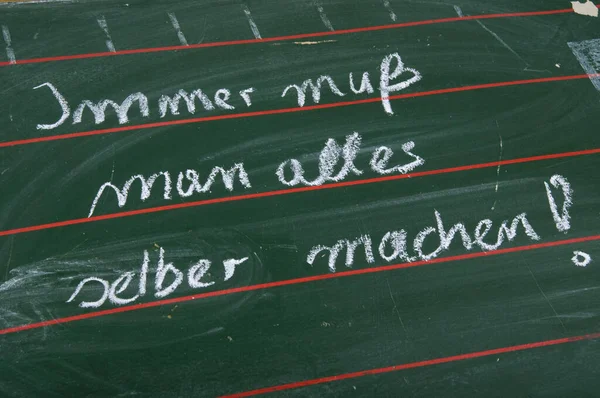 Immer muß
man alles
selber machen!